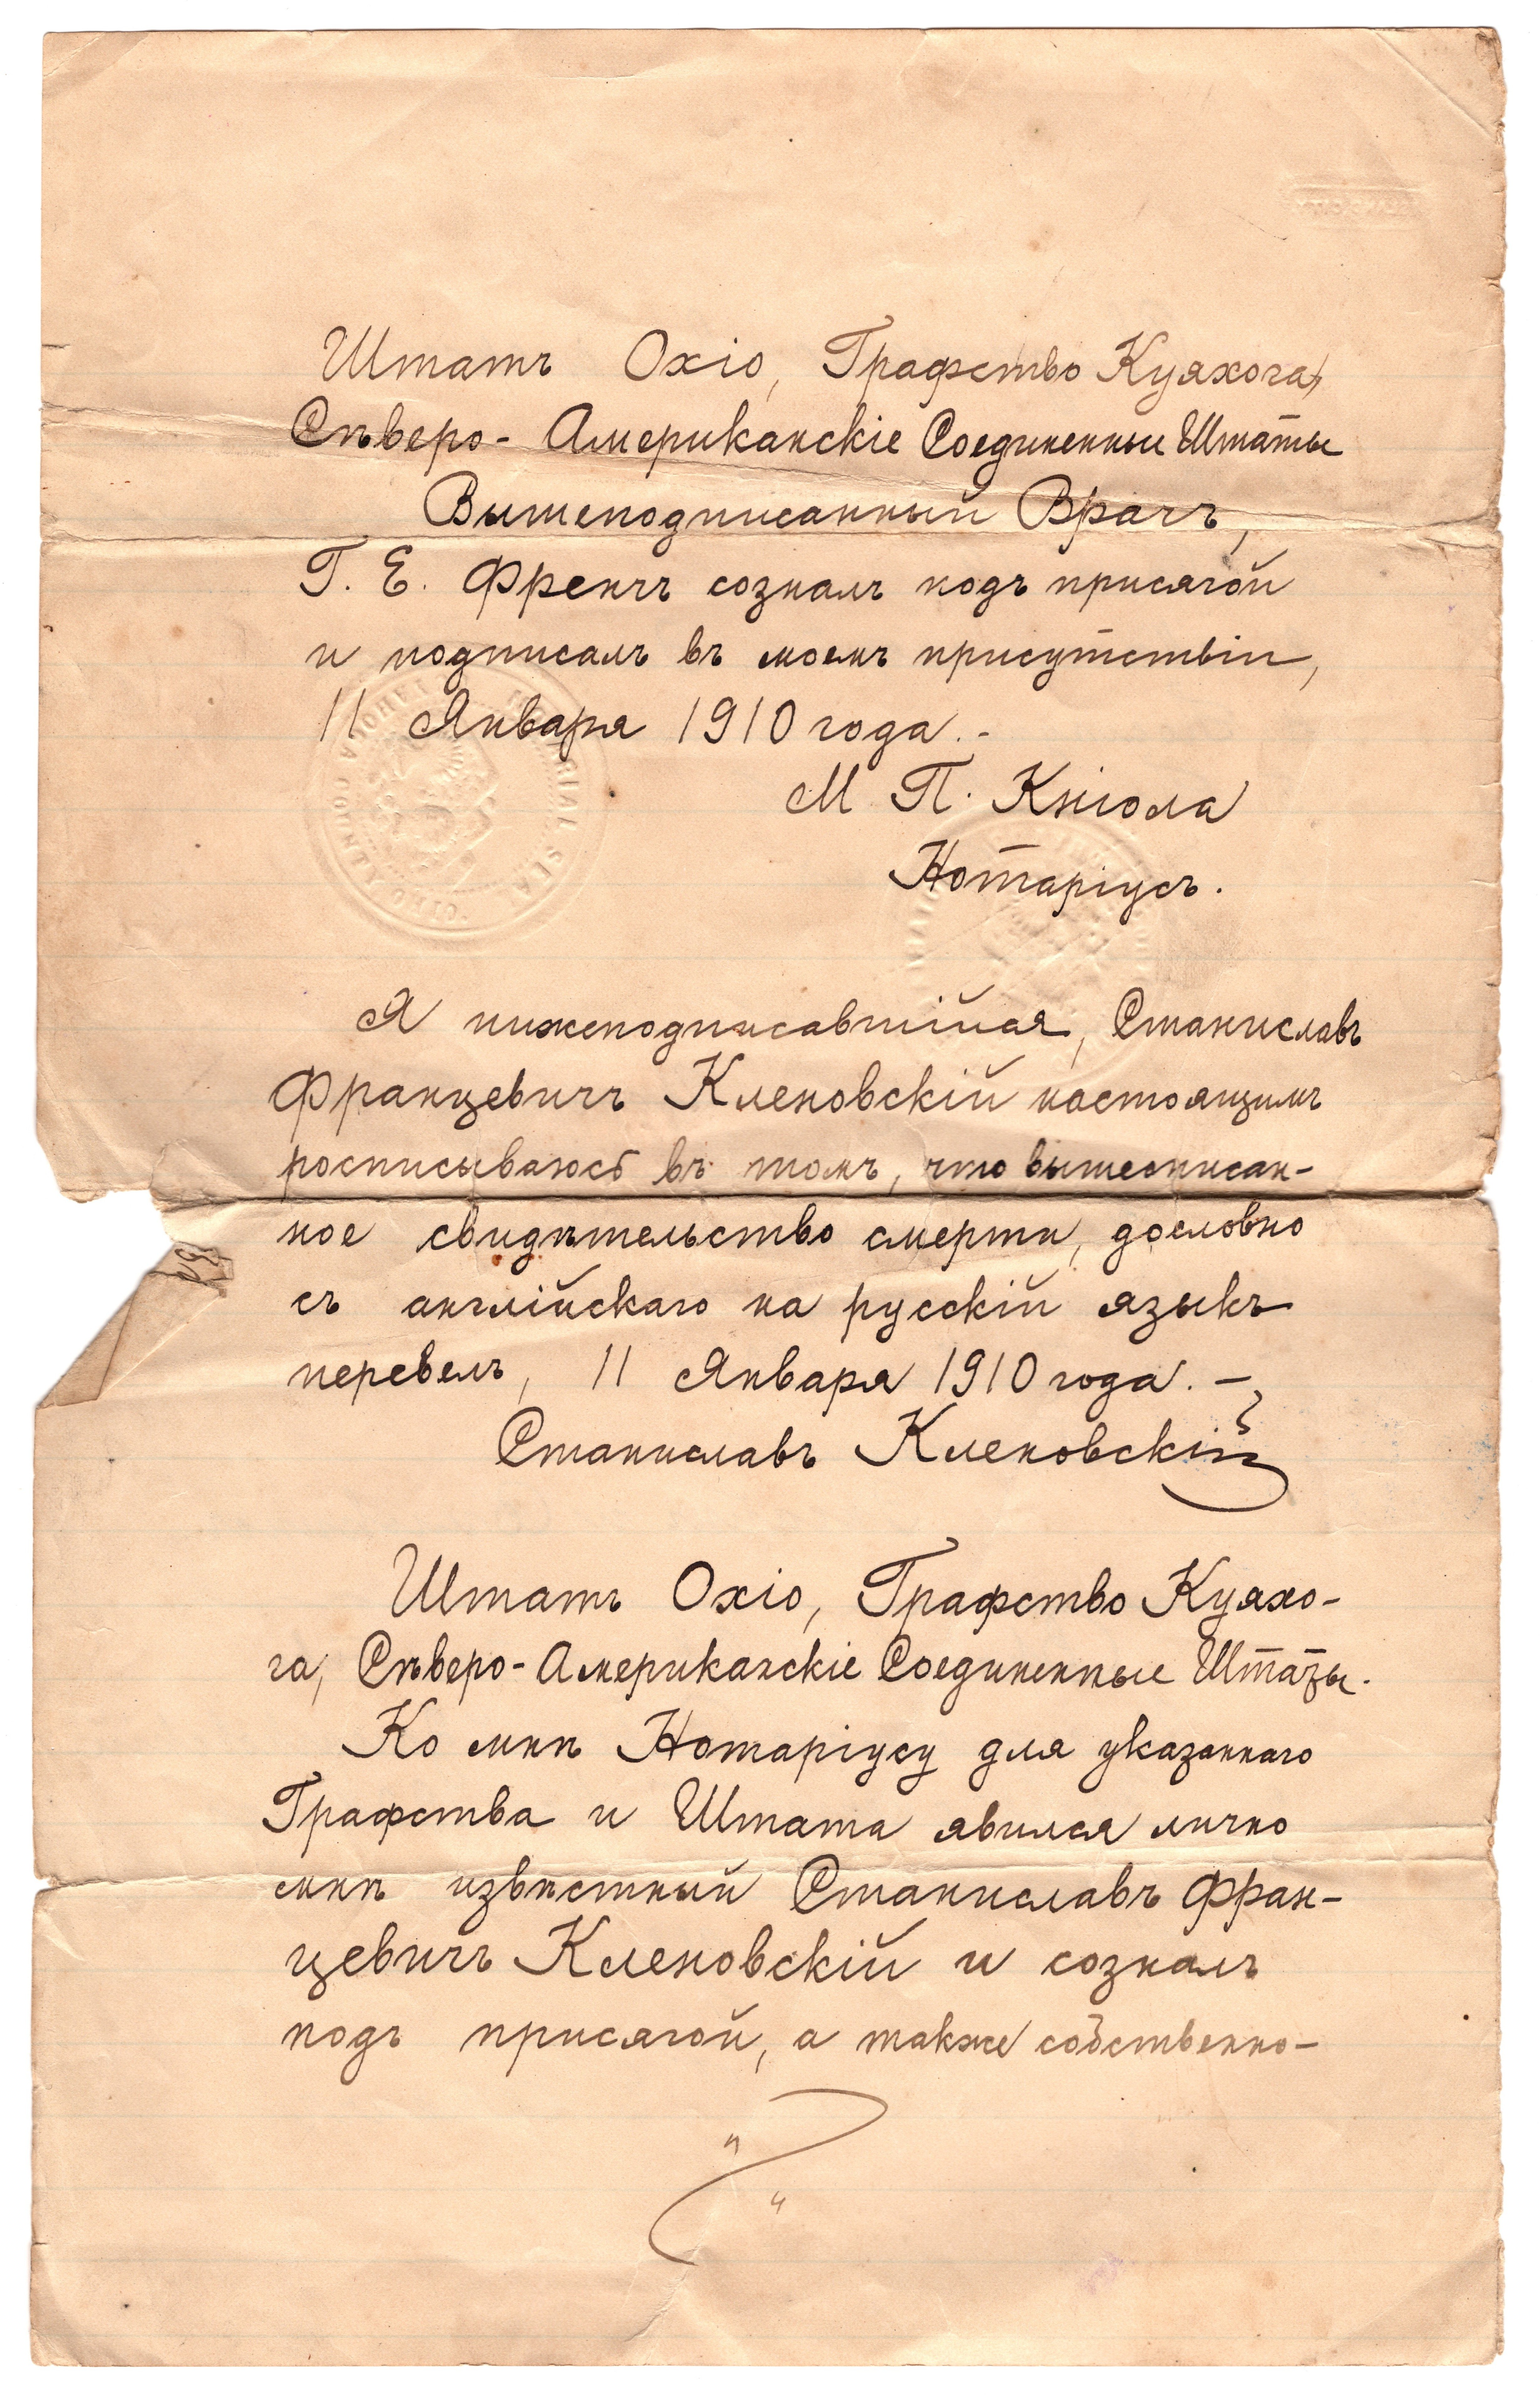 Штатъ Охіо, Графство Куяхога,
Сѣверо- Американскіе Соединенные Штаты
Вышеподписанный Врачъ,
Г. Е. Френчъ созналъ подъ присягой
и подписалъ въ моемъ присутствіи,
11 Января 1910 года.-
М П. Кніола
Нотаріусъ.
Я нижеподписавшійся, Станиславъ
Францевичъ Кленовскій настоящимъ
росписываюсь въ томъ, что вышеописан-
ное свидѣтельство смерти, дословно
съ англійскаго на русскій языкъ
перевелъ, 11 Января 1910 года. -
Станиславъ Кленовскій
Штатъ Охіо, Графство Куяхо-
га, Сѣверо-Американскіе Соединенные Штаты.
Ко мнѣ Нотаріусу для указаннаго
Графства и Штата явился лично
мнѣ извѣстный Станиславъ Фран-
цевичъ Кленовскій и созналъ
подъ присягой, а также собственно-